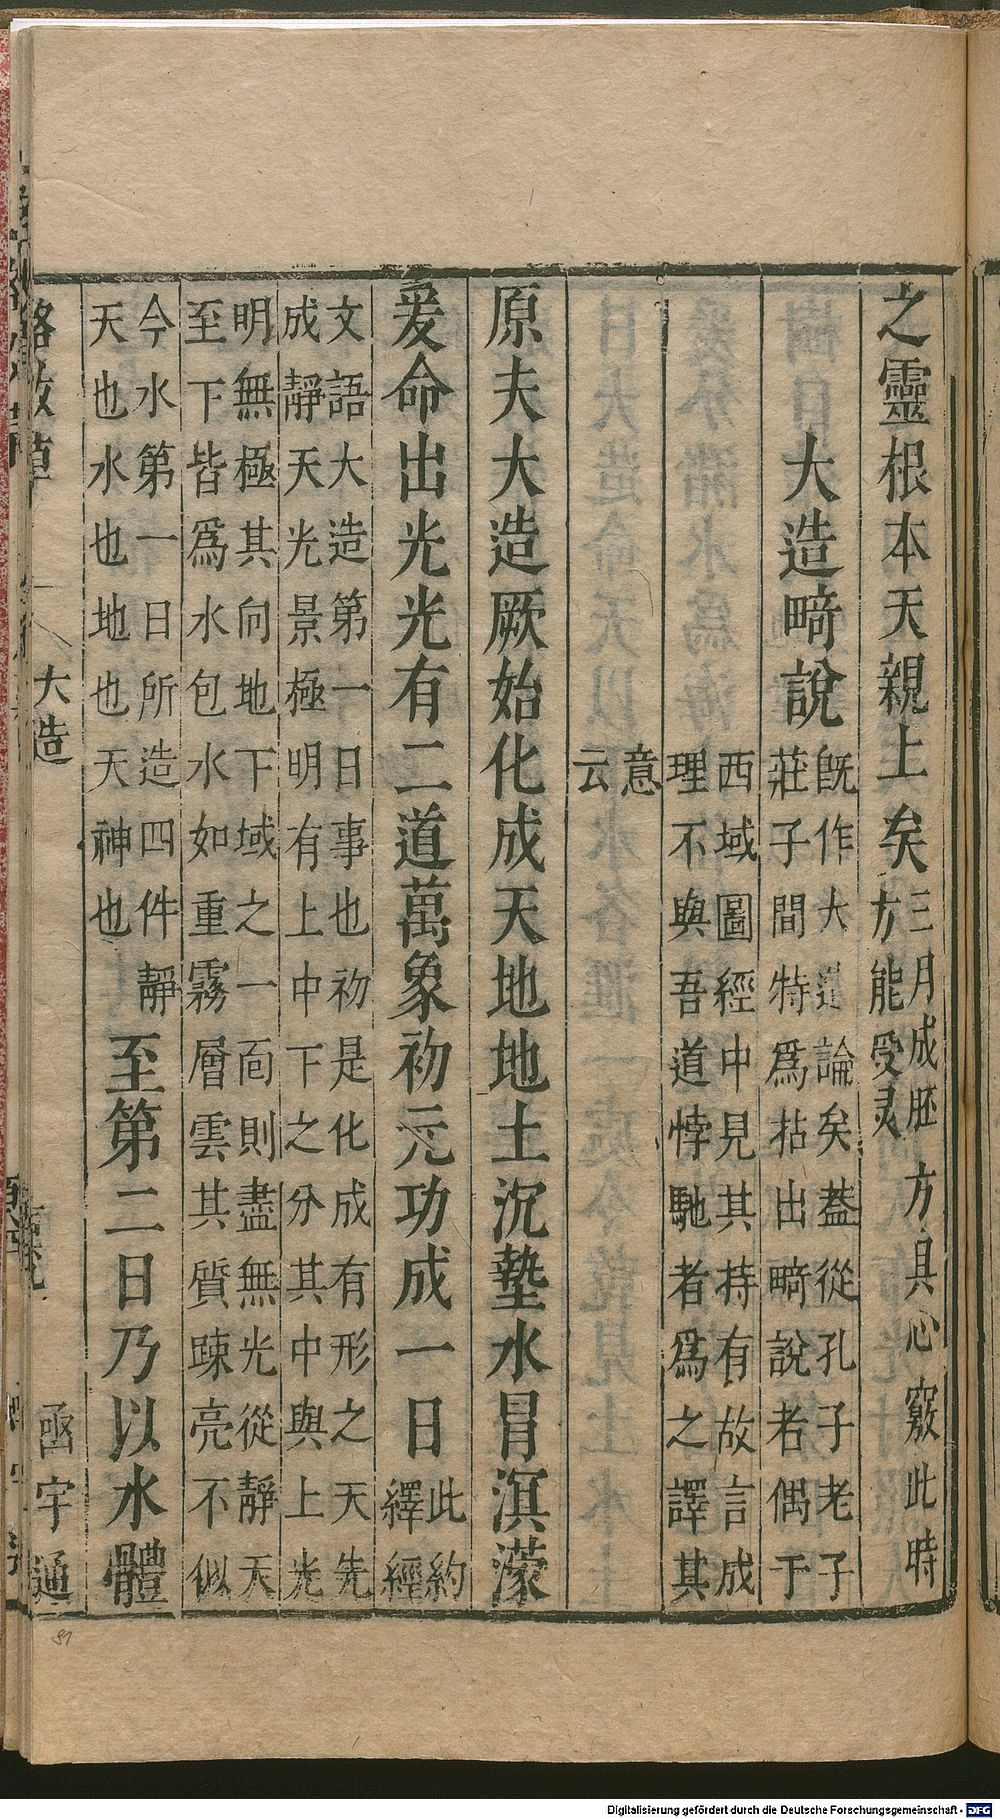 之靈根本天親上矣三月成胚方具心竅此時
方能受灵
大造畸說旣作大造論矣葢從孔子老子
莊子間特爲拈出畸說者偶于
西域圖經中見其持有故言成
理不與吾道悖馳者爲之譯其
意
云
原夫大造厥始化成天地地土沉墊水冒溟濛
爰命出光光有二道萬象初元功成一日此約
繹經
文語大造第一日事也初是化成有形之天先
成靜天光景極明有上中下之分其中與上光
明無極其向地下域之一面則盡無光從靜天
至下皆爲水包水如重霧層雲其質踈亮不似
今水第一日所造四件靜
天也水也地也天神也
至第二日乃以水體
格致草
大造
函宇通
81
Digitalisierung gefördert durch die Deutsche Forschungsgemeinschaft - DFG